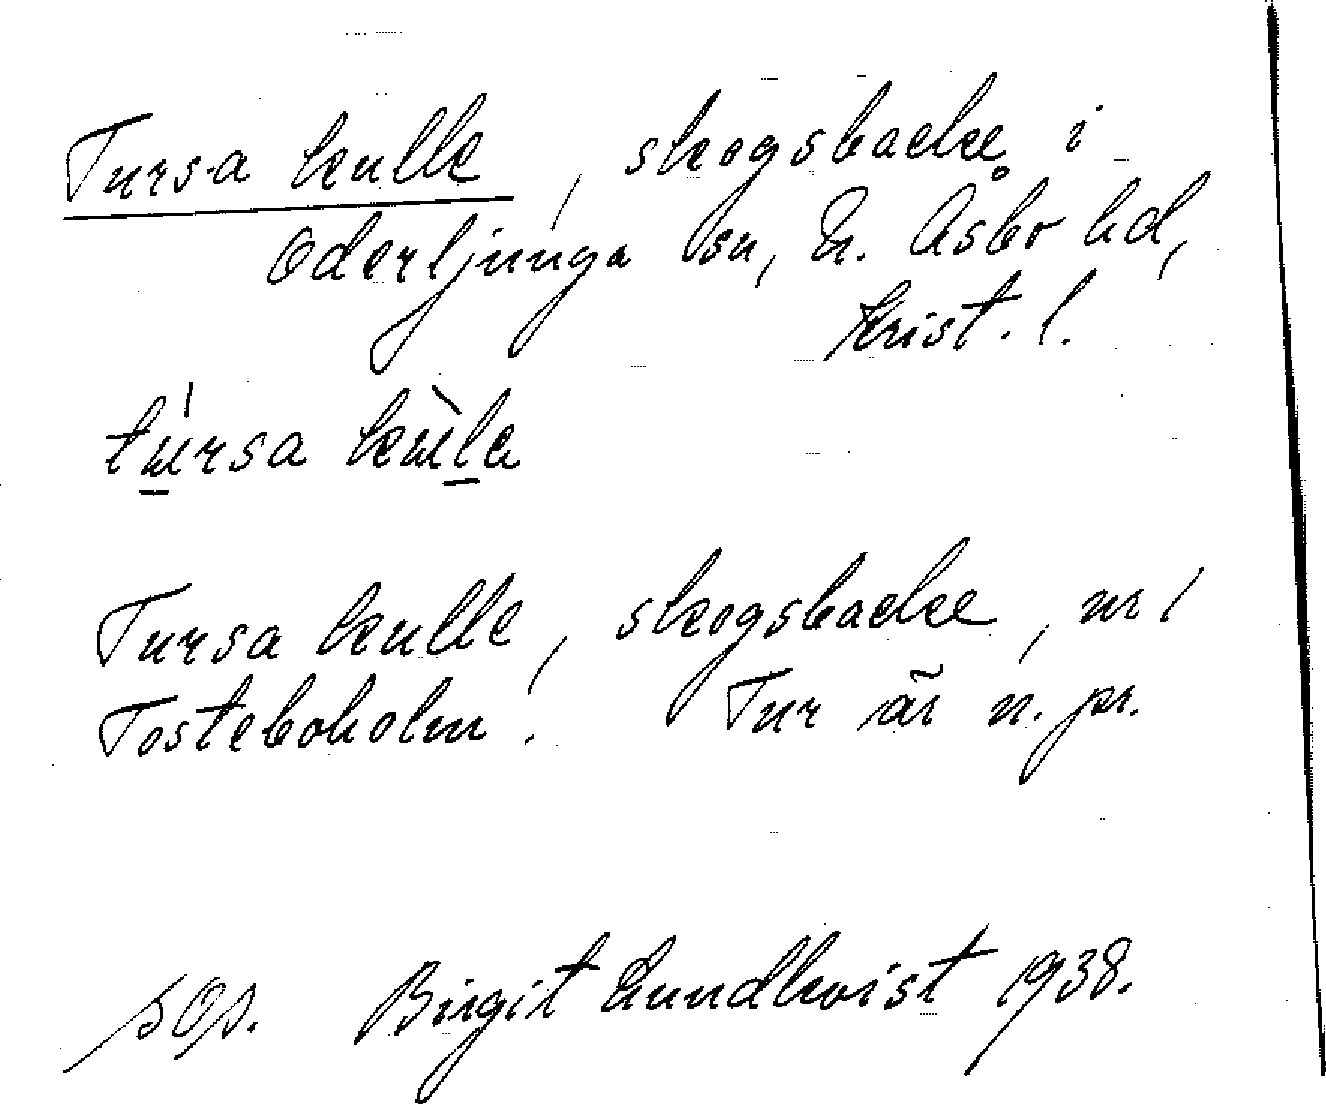 Tursa kulle, skogsbacke i
Oderljunga sn, N. Åsbo hd,
Krist. l.
tursa kula
Tursa kulle, skogsbacke, nr 1
Tosteboholm. Tur är n. pr.
SOS. Birgit Lundkvist 1938.